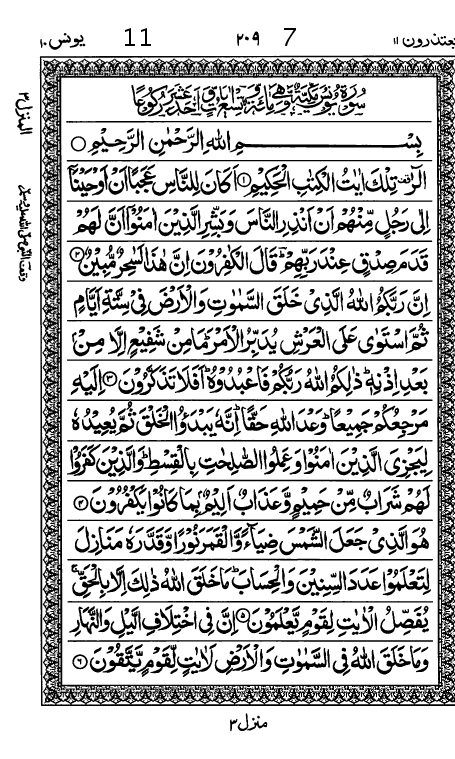 یعتذرون ۱۱ 7 ۲۰۹ 11 یونس ۱۰
سُوْرَةُ يُوْنُسَ مَكِّيَّةٌ وَّهِيَ مِائَةٌ وَّتِسْعُ اٰيَاتٍ وَّاَحَدَ عَشَرَ رُكُوْعًا
بِسْمِ اللهِ الرَّحْمٰنِ الرَّحِيْمِ ○
الٓرٰ ۫ تِلْكَ اٰيٰتُ الْكِتٰبِ الْحَكِيْمِ ۝۱ اَكَانَ لِلنَّاسِ عَجَبًا اَنْ اَوْحَيْنَاۤ
اِلٰى رَجُلٍ مِّنْهُمْ اَنْ اَنْذِرِ النَّاسَ وَبَشِّرِ الَّذِيْنَ اٰمَنُوْۤا اَنَّ لَهُمْ
قَدَمَ صِدْقٍ عِنْدَ رَبِّهِمْ ؔ قَالَ الْكٰفِرُوْنَ اِنَّ هٰذَا لَسٰحِرٌ مُّبِيْنٌ ۝۲
اِنَّ رَبَّكُمُ اللهُ الَّذِيْ خَلَقَ السَّمٰوٰتِ وَالْاَرْضَ فِيْ سِتَّةِ اَيَّامٍ
ثُمَّ اسْتَوٰى عَلَى الْعَرْشِ يُدَبِّرُ الْاَمْرَ ؕ مَا مِنْ شَفِيْعٍ اِلَّا مِنْۢ
بَعْدِ اِذْنِهٖ ؕ ذٰلِكُمُ اللهُ رَبُّكُمْ فَاعْبُدُوْهُ ؕ اَفَلَا تَذَكَّرُوْنَ ۝۳ اِلَيْهِ
مَرْجِعُكُمْ جَمِيْعًا ؕ وَعْدَ اللهِ حَقًّا ؕ اِنَّهٗ يَبْدَؤُا الْخَلْقَ ثُمَّ يُعِيْدُهٗ
لِيَجْزِيَ الَّذِيْنَ اٰمَنُوْا وَعَمِلُوا الصّٰلِحٰتِ بِالْقِسْطِ ؕ وَالَّذِيْنَ كَفَرُوْا
لَهُمْ شَرَابٌ مِّنْ حَمِيْمٍ وَّعَذَابٌ اَلِيْمٌۢ بِمَا كَانُوْا يَكْفُرُوْنَ ۝۴
هُوَ الَّذِيْ جَعَلَ الشَّمْسَ ضِيَآءً وَّالْقَمَرَ نُوْرًا وَّقَدَّرَهٗ مَنَازِلَ
لِتَعْلَمُوْا عَدَدَ السِّنِيْنَ وَالْحِسَابَ ؕ مَا خَلَقَ اللهُ ذٰلِكَ اِلَّا بِالْحَقِّ ۚ
يُفَصِّلُ الْاٰيٰتِ لِقَوْمٍ يَّعْلَمُوْنَ ۝۵ اِنَّ فِي اخْتِلَافِ الَّيْلِ وَالنَّهَارِ
وَمَا خَلَقَ اللهُ فِي السَّمٰوٰتِ وَالْاَرْضِ لَاٰيٰتٍ لِّقَوْمٍ يَّتَّقُوْنَ ۝۶
المنزل ۳
منزل ۳